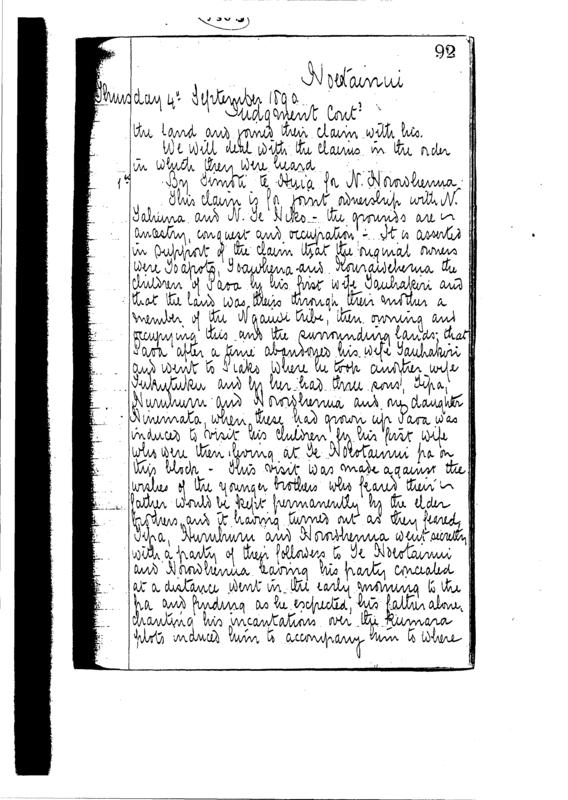 92
Hoetainui
Thursday 4th September 1890
Judgment Contd
the land and joined their claim with his.
We will deal with the claims in the order
in which they were heard
1st By Timoti te Huia for N. Horowhenua
This claim is for joint ownership with N.
and N. Te Hiko - the grounds are
ancestry, conquest and occupation - It is asserted
in support of the claim that the original owners
were Toapoto, Toawhena and the
children of Paoa by his first wife Tauhakiri and
that the land was theirs through their mother a
member of the tribe, then owning and
occupying this and the surrounding lands; that
Paoa after a time abandoned his wife Tauhakiri
and went to Piako where he took another wife
Tukutuku and by her had three sons, Tipa,
Horowhenua and one daughter
Hinemata, when these had grown up Paoa was
induced to visit his children by his first wife
who were then living at Te Hoetainui pa on
this block - This visit was made against the
wishes of the younger brothers who feared their
father would be kept permanently by the elder
brothers, and it having turned out as they feared,
Tipa, and Horowhenua went secretly
with a party of their followers to Te Hoetainui
and Horowhenua leaving his party concealed
at a distance went in the early morning to the
pa and finding as he expected, his father alone,
chanting his incantations over the kumara
plots induced him to accompany him to where